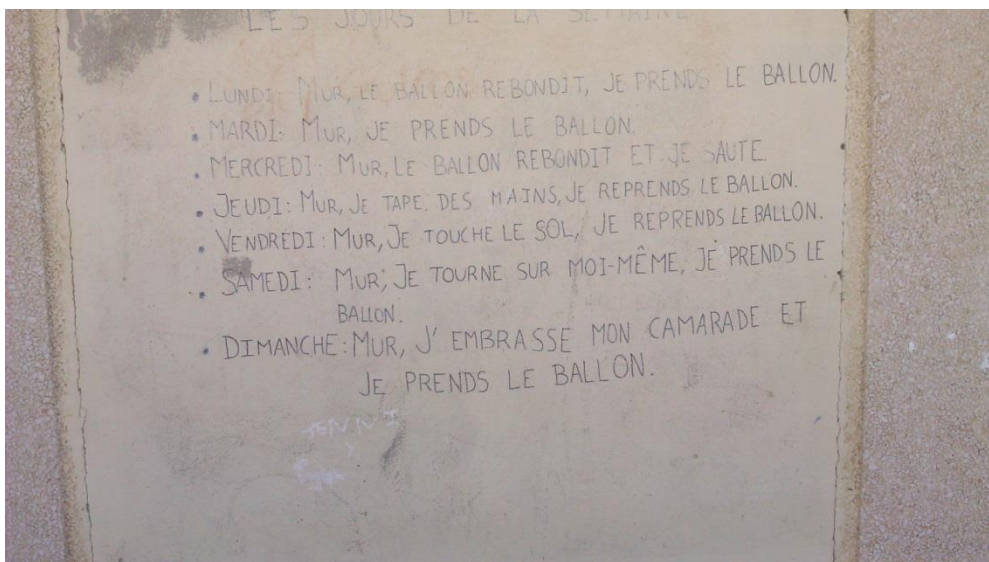 LES JOURS DE LA SEMAINE
• LUNDI: MUR, LE BALLON REBONDIT, JE PRENDS LE BALLON.
• MARDI: MUR, JE PRENDS LE BALLON.
• MERCREDI: MUR, LE BALLON REBONDIT ET JE SAUTE
• JEUDI: MUR, JE TAPE DES MAINS, JE REPRENDS LE BALLON.
• VENDREDI: MUR, JE TOUCHE LE SOL, JE REPRENDS LE BALLON.
• SAMEDI: MUR, JE TOURNE SUR MOI-MÊME, JE PRENDS LE
BALLON.
• DIMANCHE: MUR, J'EMBRASSE MON CAMARADE ET
JE PRENDS LE BALLON.